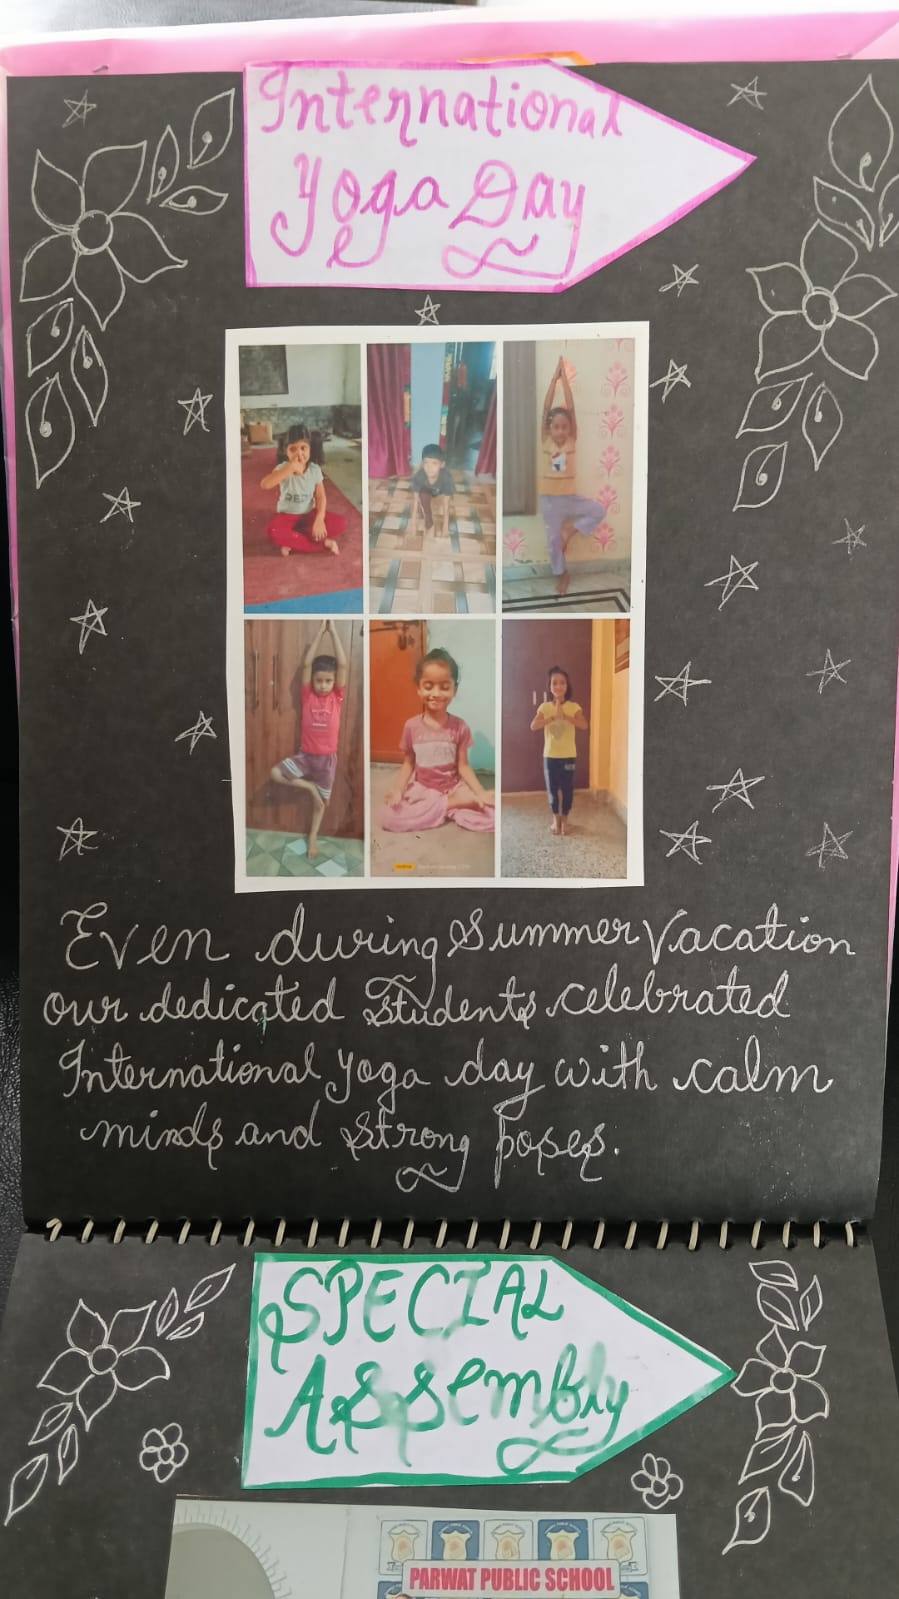 International
Yoga Day
Even during Summer Vacation
our dedicated Students celebrated
International yoga day with calm
minds and strong poses.
SPECIAL
ASSEMBly
PARWAT PUBLIC SCHOOL